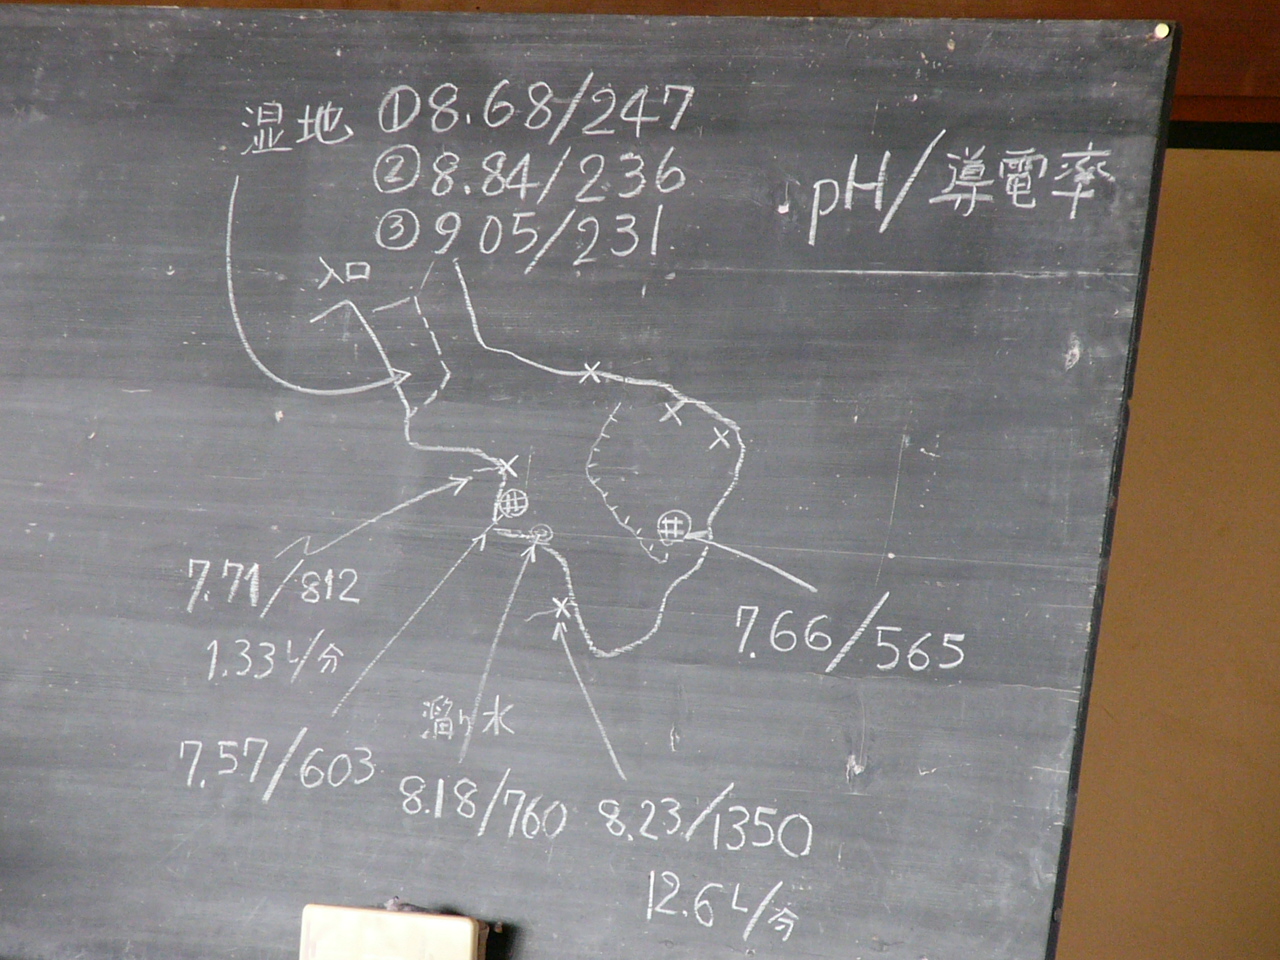 湿地 ①8.68/247
②8.84/236
③9.05/231
pH/導電率
入口
井
井
7.71/812
1.33L/分
7.66/565
7.57/603
溜り水
8.18/760
8.23/1350
12.6L/分